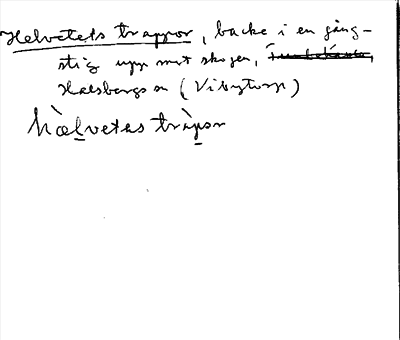 Helvetets trappor, backe i en gång-
stig upp mot skogen,
Hallsbergs sn (Vibytorp)
hælvetas tràpor